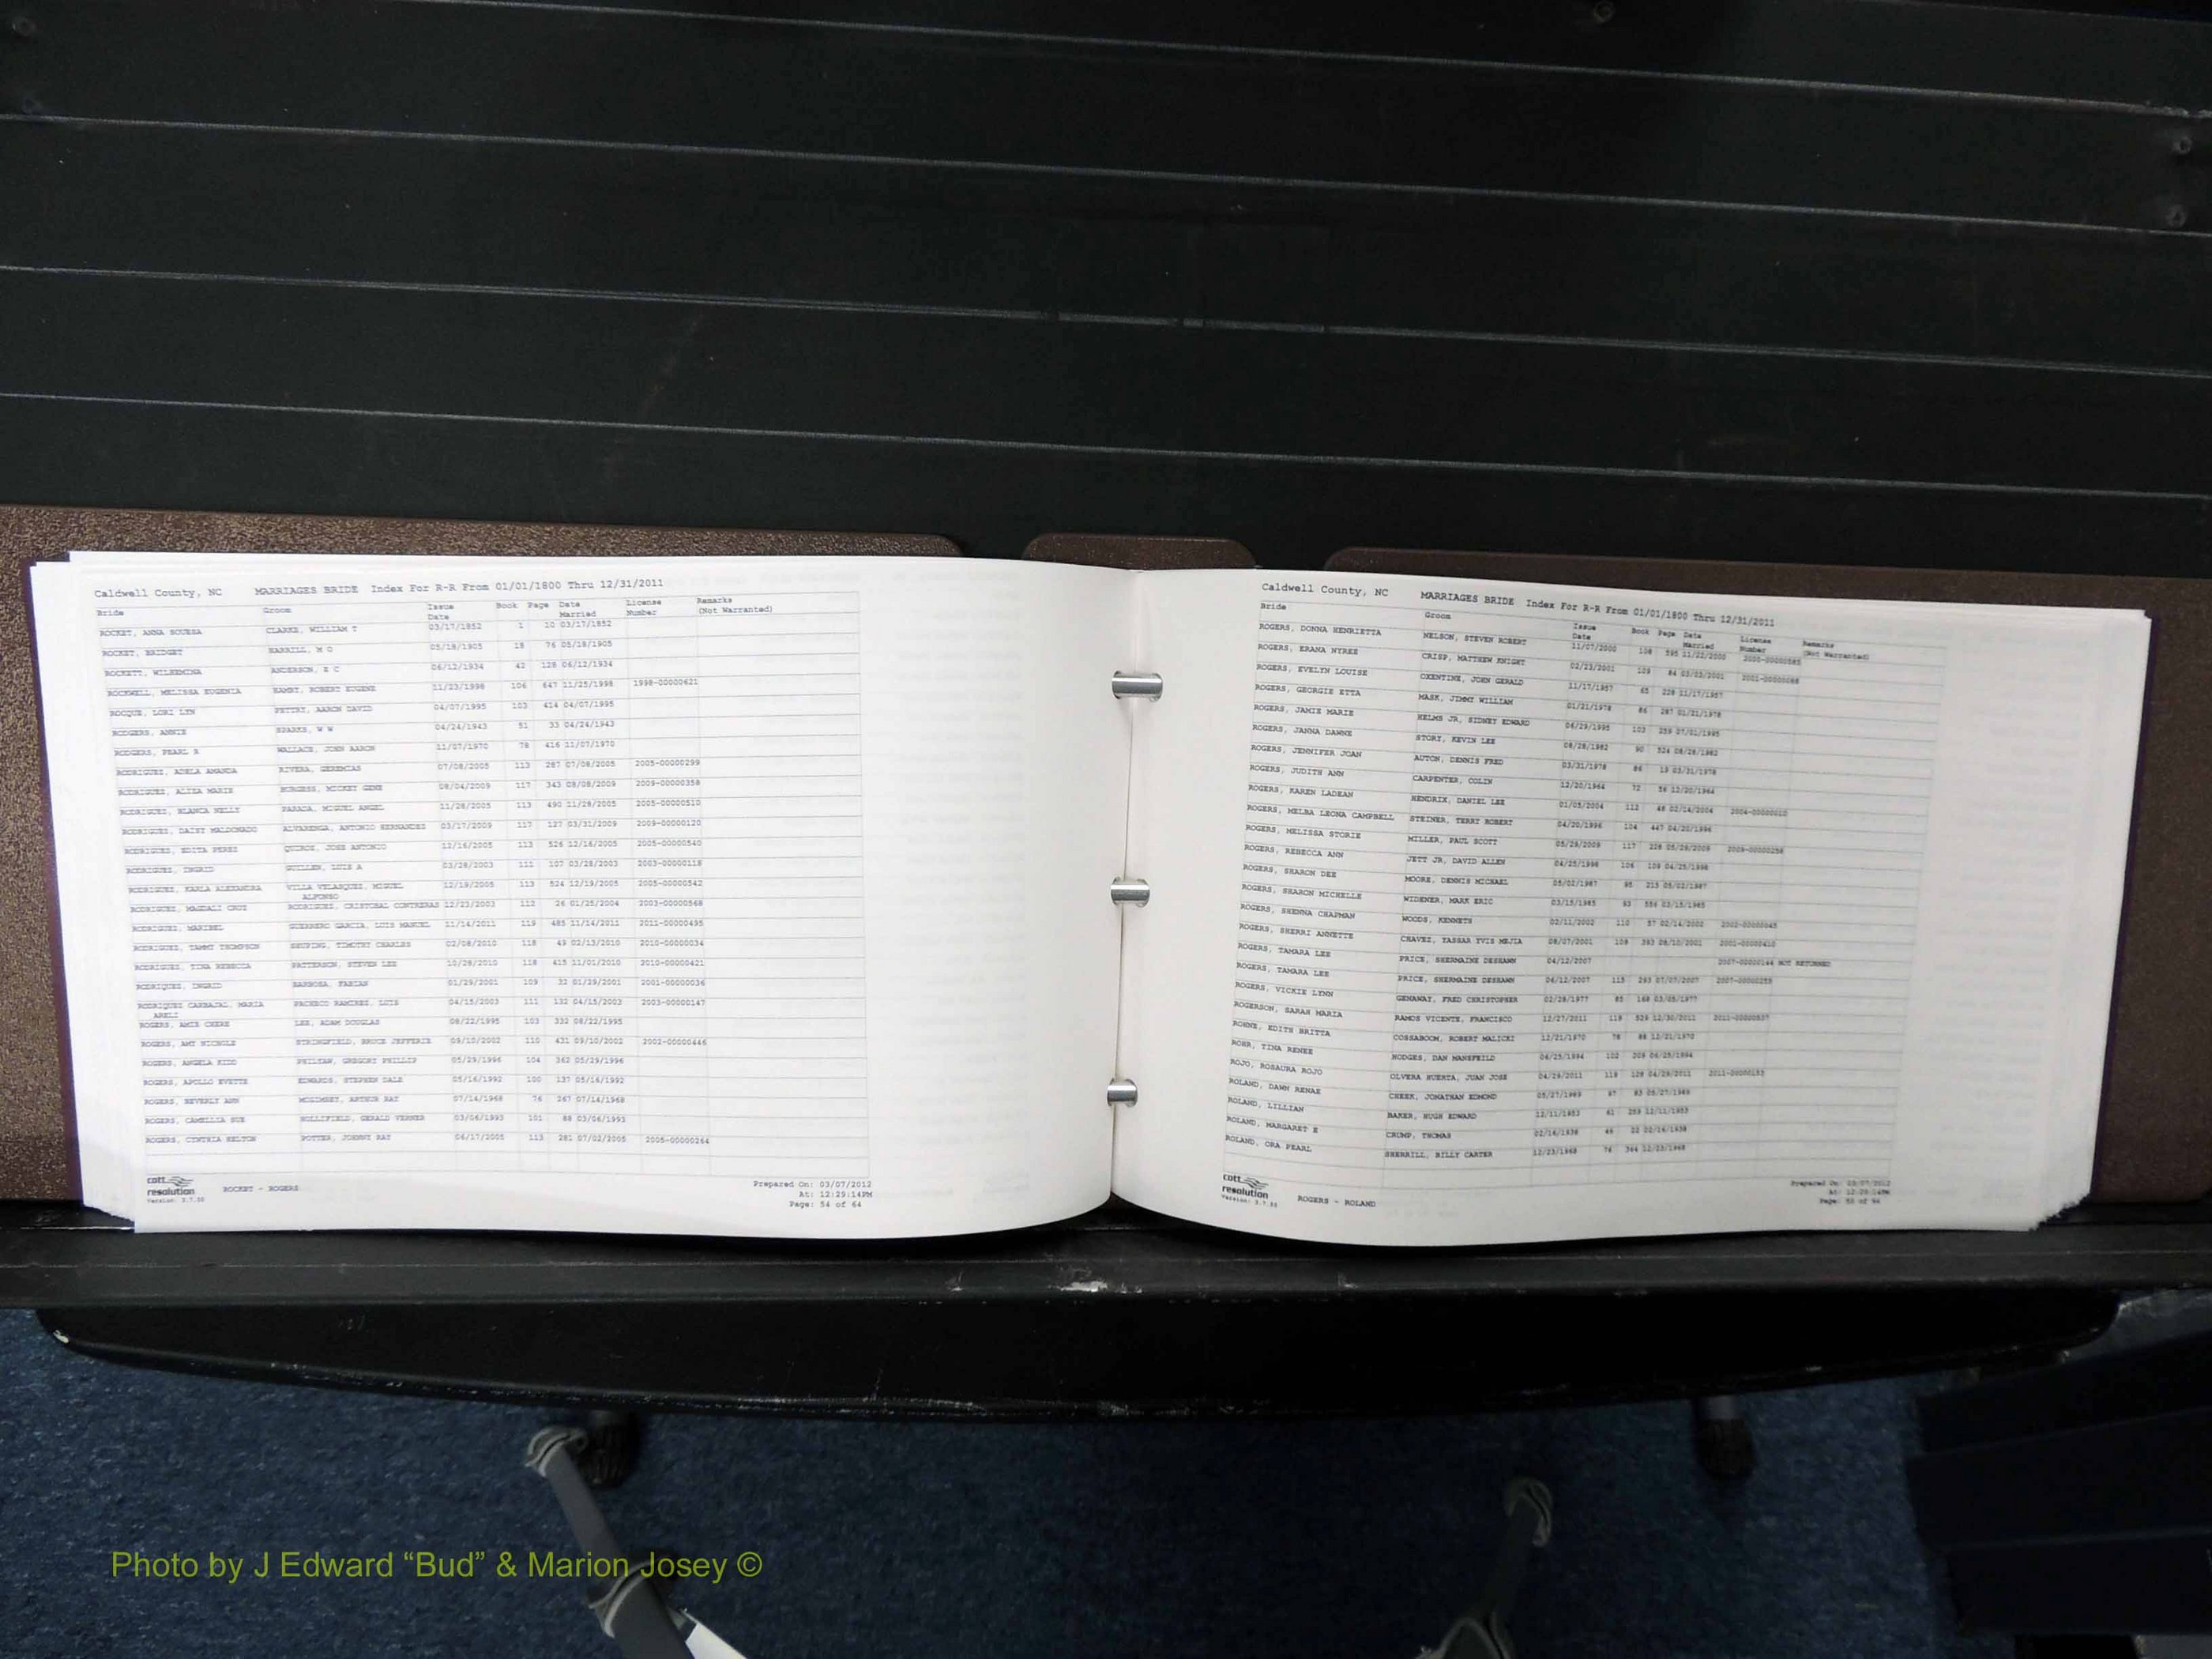 Caldwell County, NC MARRIAGES BRIDE Index For R-R From 01/01/1800 Thru 12/31/2011
Bride Groom Issue Date Book Page Date Married License Number Remarks (Not Warranted)
ROCKET, ANNA SOUESA CLARKE, WILLIAM T 03/17/1852 1 10 03/17/1852
ROCKET, BRIDGET HARRILL, M O 05/18/1905 18 76 05/18/1905
ROCKETT, WILHEMINA ANDERSON, E C 06/12/1934 42 128 06/12/1934
ROCKWELL, MELISSA EUGENIA HAMBY, ROBERT EUGENE 11/23/1998 106 647 11/25/1998 1998-00000621
ROCQUE, LORI LYN PETTRY, AARON DAVID 04/07/1995 103 414 04/07/1995
RODGERS, ANNIE SPARKS, W W 04/24/1943 51 33 04/24/1943
RODGERS, PEARL R WALLACE, JOHN AARON 11/07/1970 78 416 11/07/1970
RODRIGUEZ, ADELA AMANDA RIVERA, GEREMIAS 07/08/2005 113 287 07/08/2005 2005-00000299
RODRIGUEZ, ALIZA MARIE BURGESS, MICKEY GENE 08/04/2009 117 343 08/08/2009 2009-00000358
RODRIGUEZ, BLANCA NELLY PARADA, MIGUEL ANGEL 11/28/2005 113 490 11/28/2005 2005-00000510
RODRIGUEZ, DAISY MALDONADO ALVARENGA, ANTONIO HERNANDES 03/17/2009 117 127 03/31/2009 2009-00000120
RODRIGUEZ, EDITA PEREZ QUIROZ, JOSE ANTONIO 12/16/2005 113 526 12/16/2005 2005-00000540
RODRIGUEZ, INGRID GUILLEN, LUIS A 03/28/2003 111 107 03/28/2003 2003-00000118
RODRIGUEZ, KARLA ALEXANDRA VILLA VELASQUEZ, MIGUEL 12/19/2005 113 524 12/19/2005 2005-00000542
ALFONSO
RODRIGUEZ, MAGDALI CRUZ RODRIGUEZ, CRISTOBAL CONTRERAS 12/23/2003 112 26 01/25/2004 2003-00000568
RODRIGUEZ, MARIBEL GUERRERO GARCIA, LUIS MANUEL 11/14/2011 119 485 11/14/2011 2011-00000495
RODRIGUEZ, TAMMY THOMPSON SHUPING, TIMOTHY CHARLES 02/08/2010 118 49 02/13/2010 2010-00000034
RODRIGUEZ, TINA REBECCA PATTERSON, STEVEN LEE 10/28/2010 118 415 11/01/2010 2010-00000421
RODRIQUES, INGRID BARBOSA, FABIAN 01/29/2001 109 32 01/29/2001 2001-00000036
RODRIQUEZ CARBAJAL, MARIA PACHECO RAMIREZ, LUIS 04/15/2003 111 132 04/15/2003 2003-00000147
ARELI
ROGERS, AMIE CHERE LEE, ADAM DOUGLAS 08/22/1995 103 332 08/22/1995
ROGERS, AMY NICHOLE STRINGFIELD, BRUCE JEFFERIE 09/10/2002 110 431 09/10/2002 2002-00000446
ROGERS, ANGELA KIDD PHILYAW, GREGORY PHILLIP 05/29/1996 104 362 05/29/1996
ROGERS, APOLLO EVETTE EDWARDS, STEPHEN DALE 05/16/1992 100 137 05/16/1992
ROGERS, BEVERLY ANN MCGIMSEY, ARTHUR RAY 07/14/1968 76 267 07/14/1968
ROGERS, CAMELLIA SUE HOLLIFIELD, GERALD VERNER 03/06/1993 101 88 03/06/1993
ROGERS, CYNTHIA HELTON POTTER, JOHNNY RAY 06/17/2005 113 281 07/02/2005 2005-00000264
cott resolution
Version: 3.7.50
ROCKET - ROGERS
Prepared On: 03/07/2012
At: 12:29:14PM
Page: 54 of 64
Caldwell County, NC MARRIAGES BRIDE Index For R-R From 01/01/1800 Thru 12/31/2011
Bride Groom Issue Date Book Page Date Married License Number Remarks (Not Warranted)
ROGERS, DONNA HENRIETTA NELSON, STEVEN ROBERT 11/07/2000 108 595 11/22/2000 2000-00000585
ROGERS, ERANA NYREE CRISP, MATTHEW KNIGHT 02/23/2001 109 84 03/03/2001 2001-00000086
ROGERS, EVELYN LOUISE OXENTINE, JOHN GERALD 11/17/1957 65 228 11/17/1957
ROGERS, GEORGIE ETTA MASK, JIMMY WILLIAM 01/21/1978 86 287 01/21/1978
ROGERS, JAMIE MARIE HELMS JR, SIDNEY EDWARD 06/29/1995 103 259 07/01/1995
ROGERS, JANNA DAWNE STORY, KEVIN LEE 08/28/1982 90 524 08/28/1982
ROGERS, JENNIFER JOAN AUTON, DENNIS FRED 03/31/1978 86 19 03/31/1978
ROGERS, JUDITH ANN CARPENTER, COLIN 12/20/1964 72 56 12/20/1964
ROGERS, KAREN LADEAN HENDRIX, DANIEL LEE 01/05/2004 112 48 02/14/2004 2004-00000010
ROGERS, MELBA LEONA CAMPBELL STEINER, TERRY ROBERT 04/20/1996 104 447 04/20/1996
ROGERS, MELISSA STORIE MILLER, PAUL SCOTT 05/29/2009 117 228 05/29/2009 2009-00000258
ROGERS, REBECCA ANN JETT JR, DAVID ALLEN 04/25/1998 106 109 04/25/1998
ROGERS, SHARON DEE MOORE, DENNIS MICHAEL 05/02/1987 95 215 05/02/1987
ROGERS, SHARON MICHELLE WIDENER, MARK ERIC 03/15/1985 93 03/15/1985
ROGERS, SHENNA CHAPMAN WOODS, KENNETH 02/11/2002 110 57 02/14/2002 2002-00000045
ROGERS, SHERRI ANNETTE CHAVEZ, YASSAR YVIS MEJIA 08/07/2001 109 393 08/10/2001 2001-00000410
ROGERS, TAMARA LEE PRICE, SHERMAINE DESHAWN 04/12/2007 2007-00000144 NOT RETURNED
ROGERS, TAMARA LEE PRICE, SHERMAINE DESHAWN 06/12/2007 115 293 07/07/2007 2007-00000255
ROGERS, VICKIE LYNN GENAWAY, FRED CHRISTOPHER 02/28/1977 85 168 03/05/1977
ROGERSON, SARAH MARIA RAMOS VICENTE, FRANCISCO 12/27/2011 119 529 12/30/2011 2011-00000537
ROHNE, EDITH BRITTA COSSABOOM, ROBERT MALICKI 12/21/1970 78 88 12/21/1970
ROHR, TINA RENEE HODGES, DAN MANSFEILD 06/25/1994 102 209 06/25/1994
ROJO, ROSAURA ROJO OLVERA HUERTA, JUAN JOSE 04/29/2011 119 128 04/29/2011 2011-00000153
ROLAND, DAWN RENAE CHEEK, JONATHAN EDMOND 05/27/1989 97 83 05/27/1989
ROLAND, LILLIAN BAKER, HUGH EDWARD 12/11/1953 61 259 12/11/1953
ROLAND, MARGARET E CRUMP, THOMAS 02/16/1938 46 22 02/16/1938
ROLAND, ORA PEARL SHERRILL, BILLY CARTER 12/23/1968 76 344 12/23/1968
cott resolution
Version: 3.7.50
ROGERS - ROLAND
Prepared On: 03/07/2012
At: 12:29:14PM
Page: 55 of 64
Photo by J Edward “Bud” & Marion Josey ©